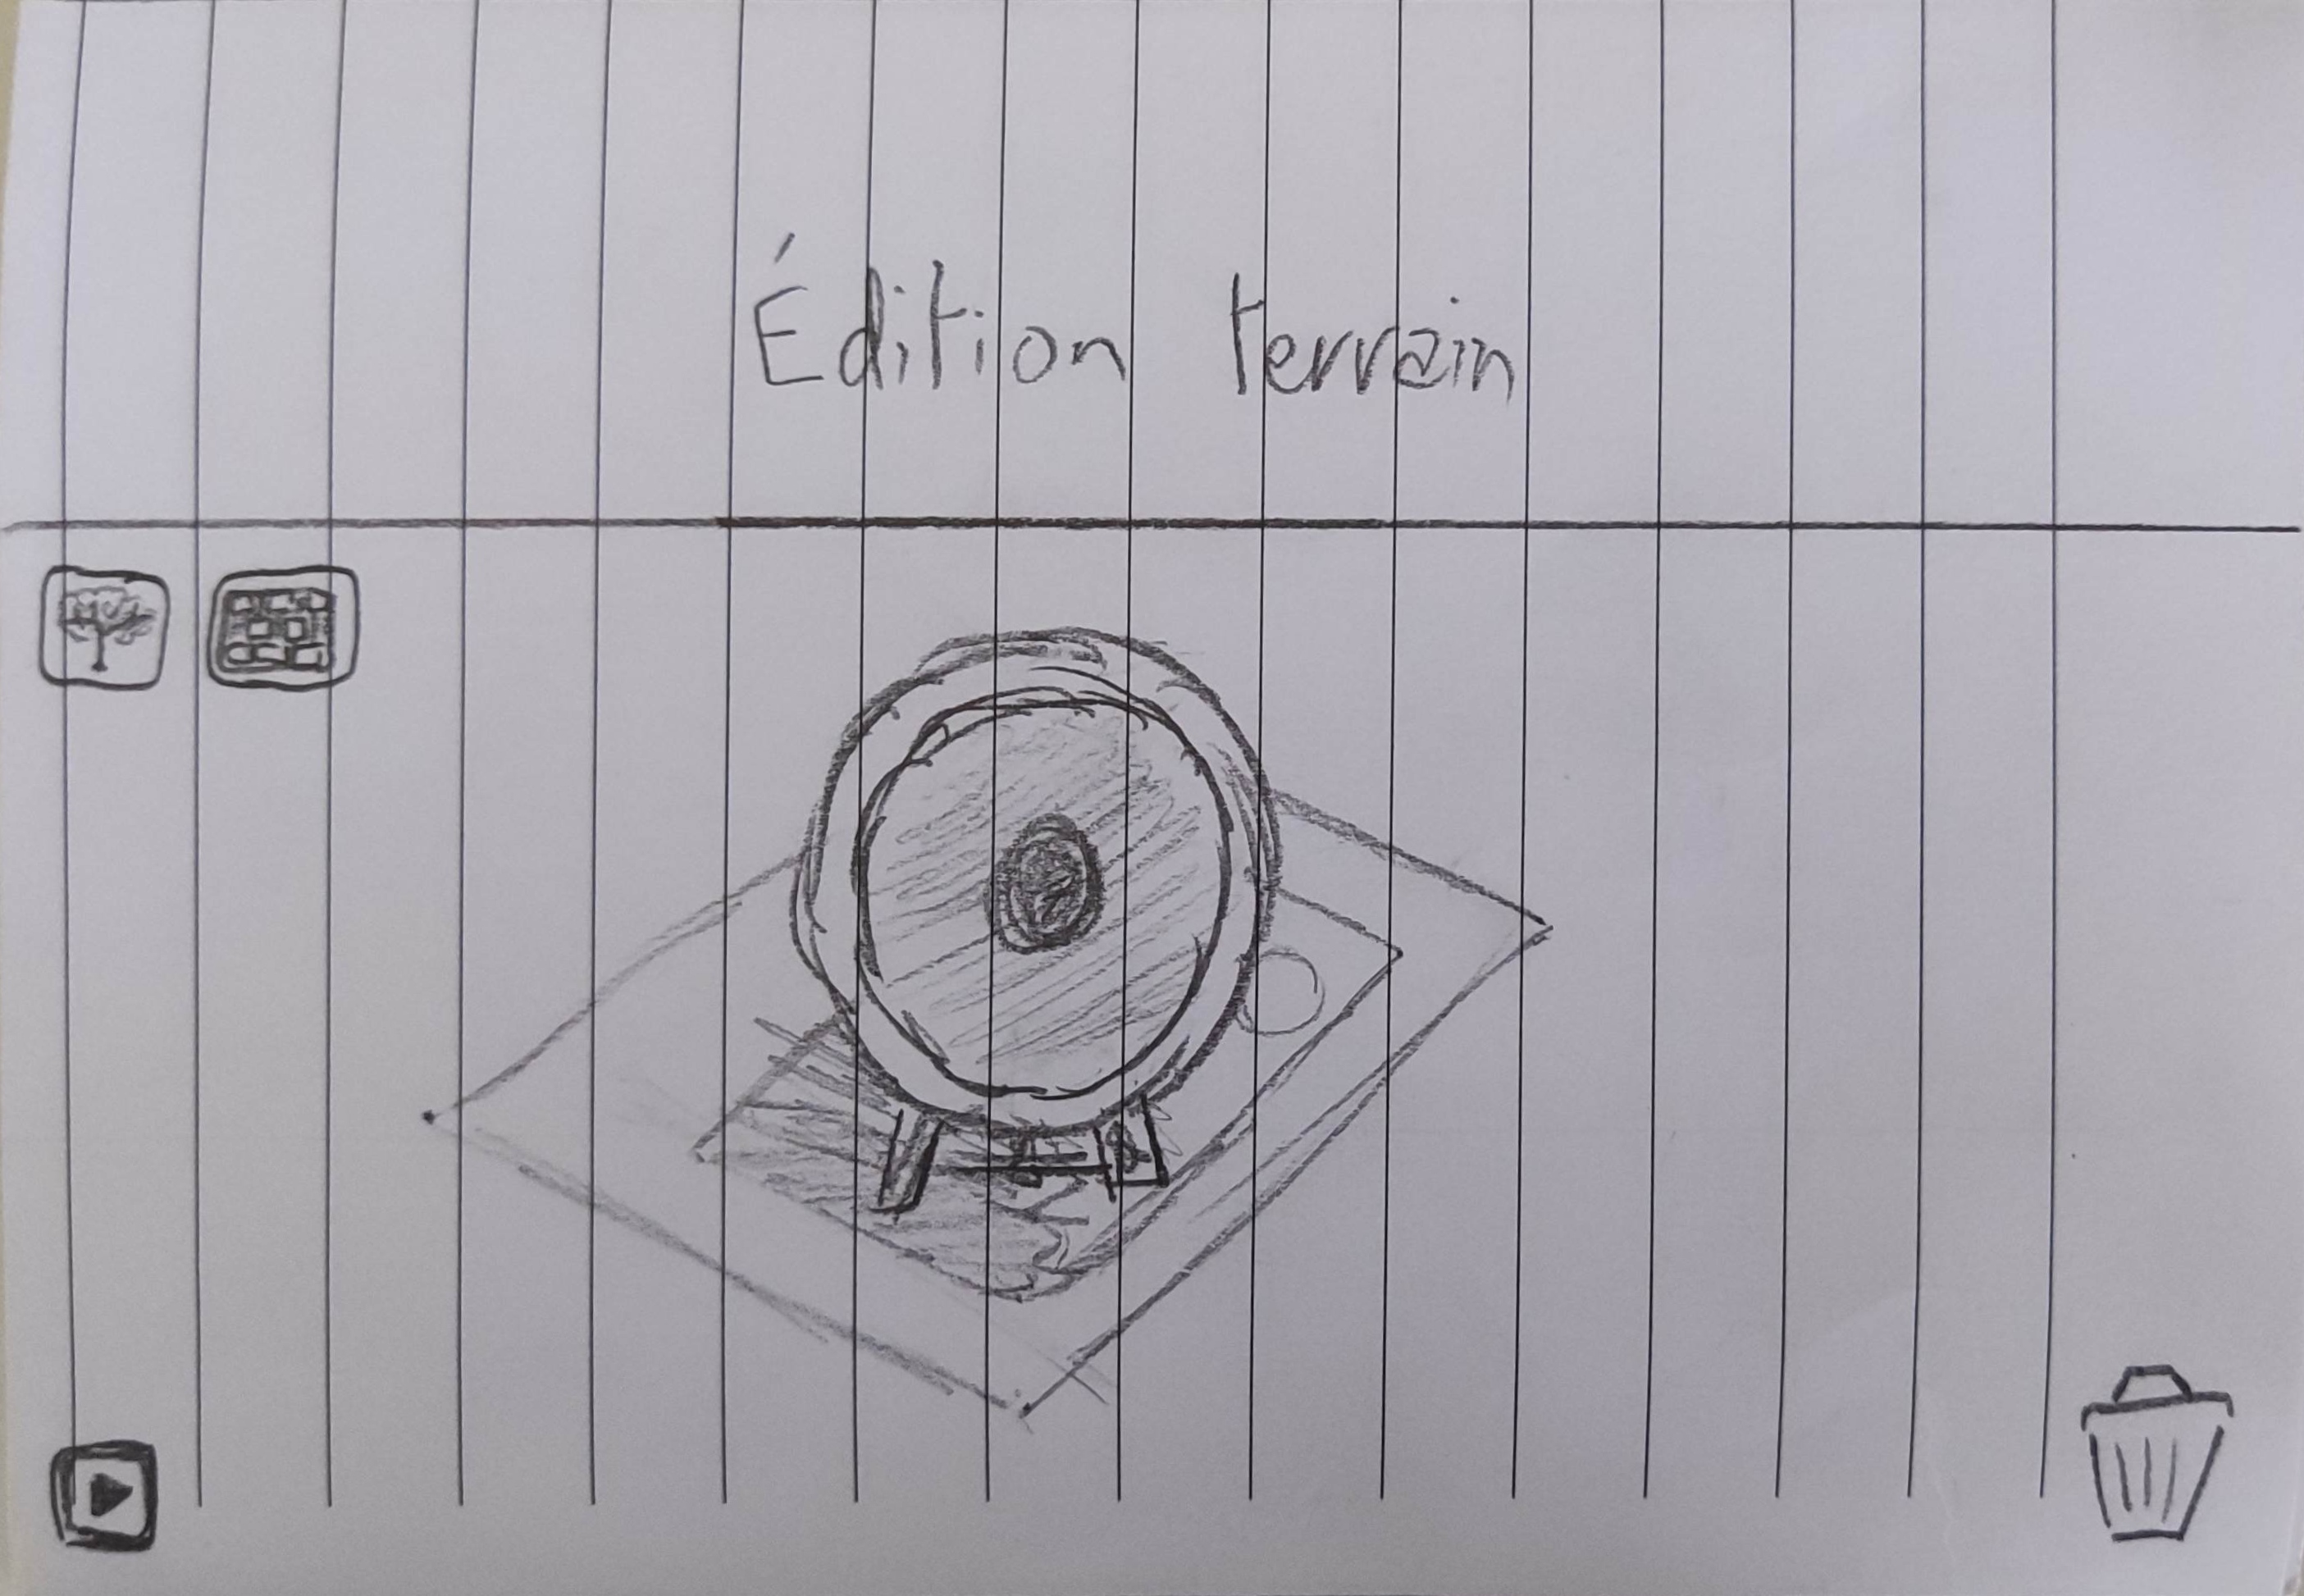 Édition terrain